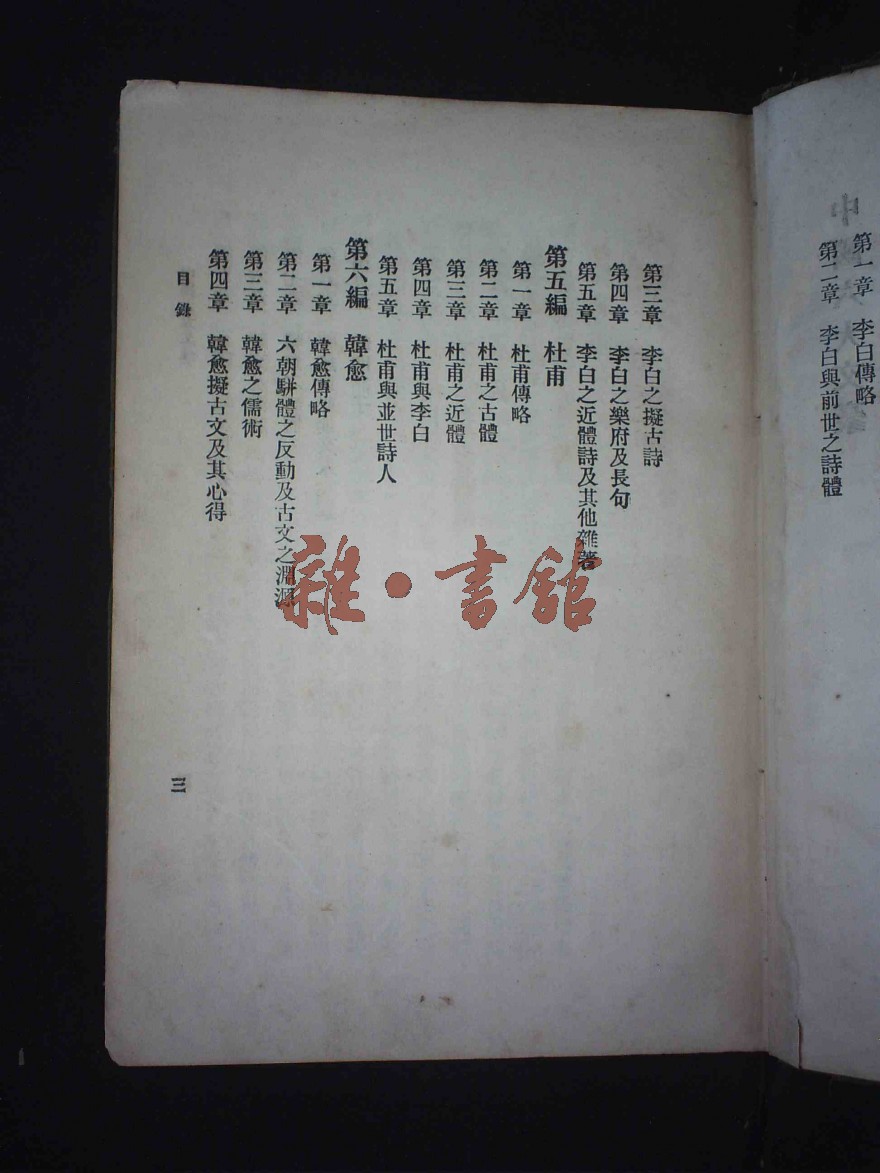 第一章 李白傳略
第二章 李白與前世之詩體
第三章 李白之擬古詩
第四章 李白之樂府及長句
第五章 李白之近體詩及其他雜著
第五編 杜甫
第一章 杜甫傳略
第二章 杜甫之古體
第三章 杜甫之近體
第四章 杜甫與李白
第五章 杜甫與並世詩人
第六編 韓愈
第一章 韓愈傳略
第二章 六朝駢體之反動及古文之淵源
第三章 韓愈之儒術
第四章 韓愈擬古文及其心得
目錄
三
雜·書館